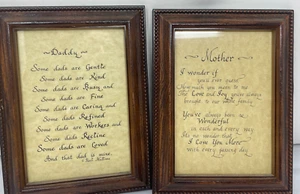 ~ Daddy ~
Some dads are Gentle
Some dads are Kind
Some dads are Busy and
Some dads are Fine
Some dads are Caring and
Some dads are Refined
Some dads are Workers and
Some dads Recline
Some dads are Loved
And that dad is mine
~ Mother ~
I wonder if
you'll ever guess
How much you mean to me
The Love and Joy you've always
brought to our entire family
You've always been so
Wonderful
in each and every way
It's no wonder that
I Love You More
with every passing day